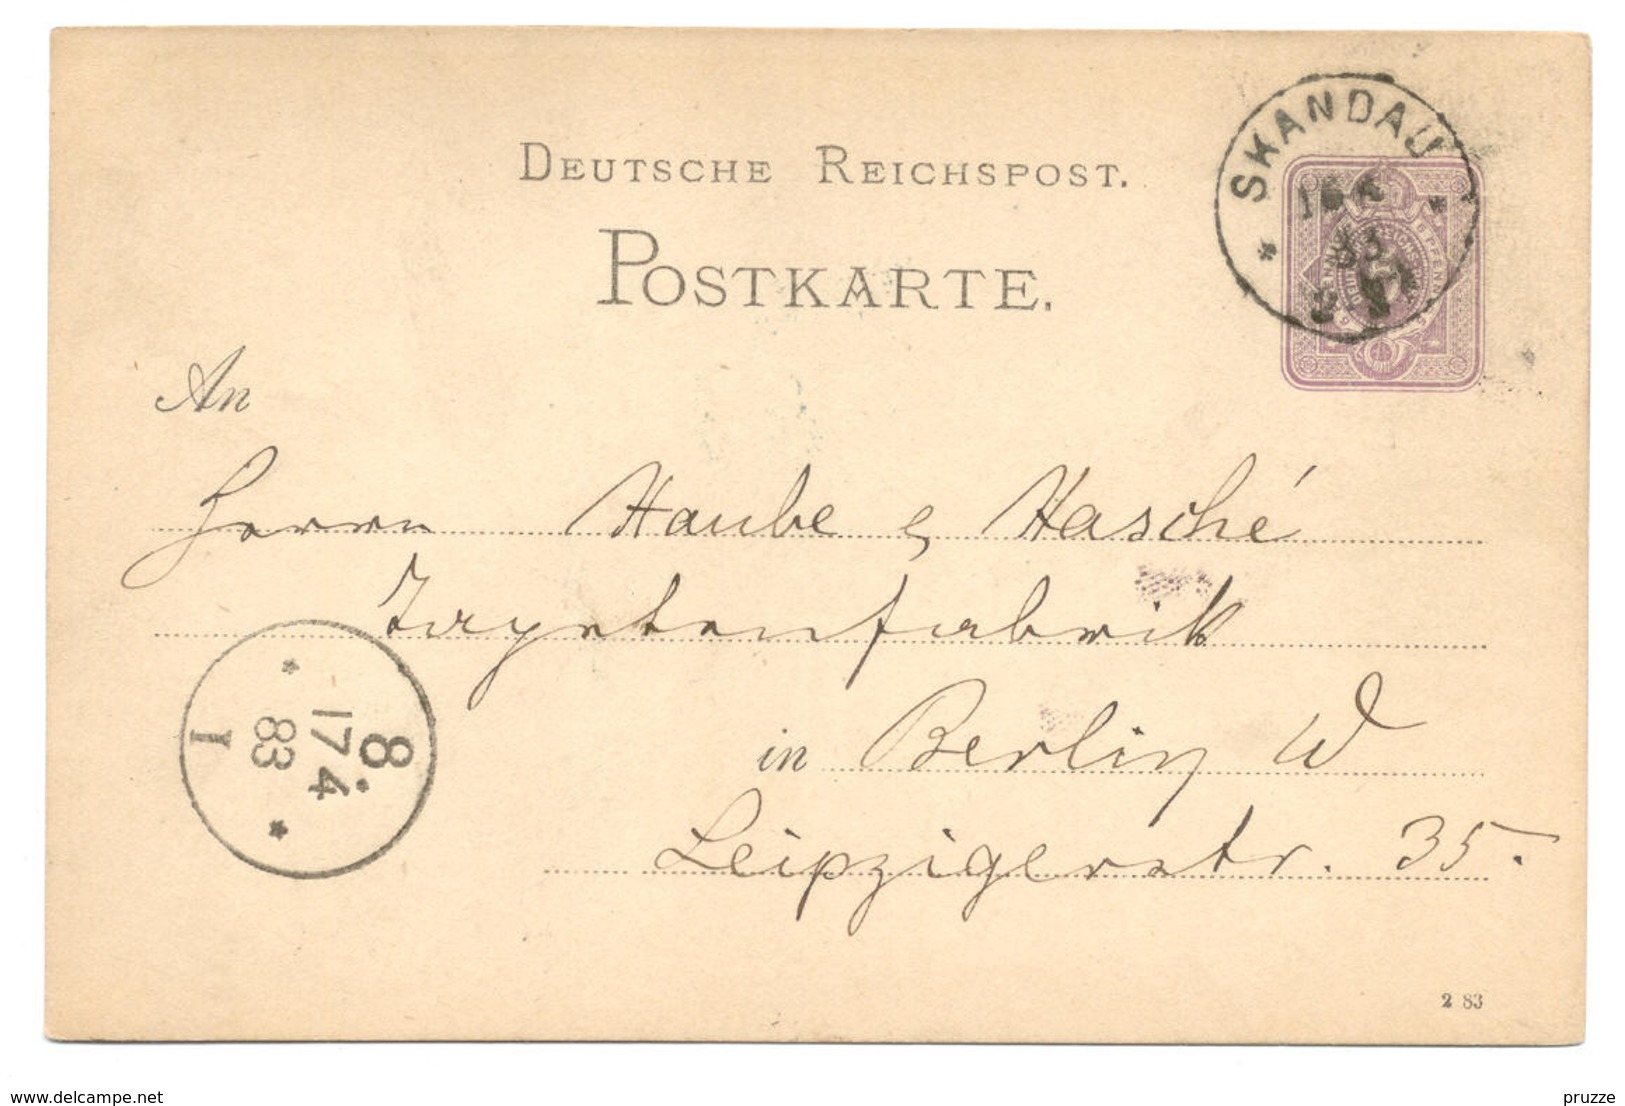 DEUTSCHE REICHSPOST.
POSTKARTE.
SKANDAU
83
An
Herren Haube & Hasché
Tapetenfabrik
in Berlin W
Leipzigerstr. 35.
8.
17 4
83
1
2 83
www.delcampe.net
pruzze